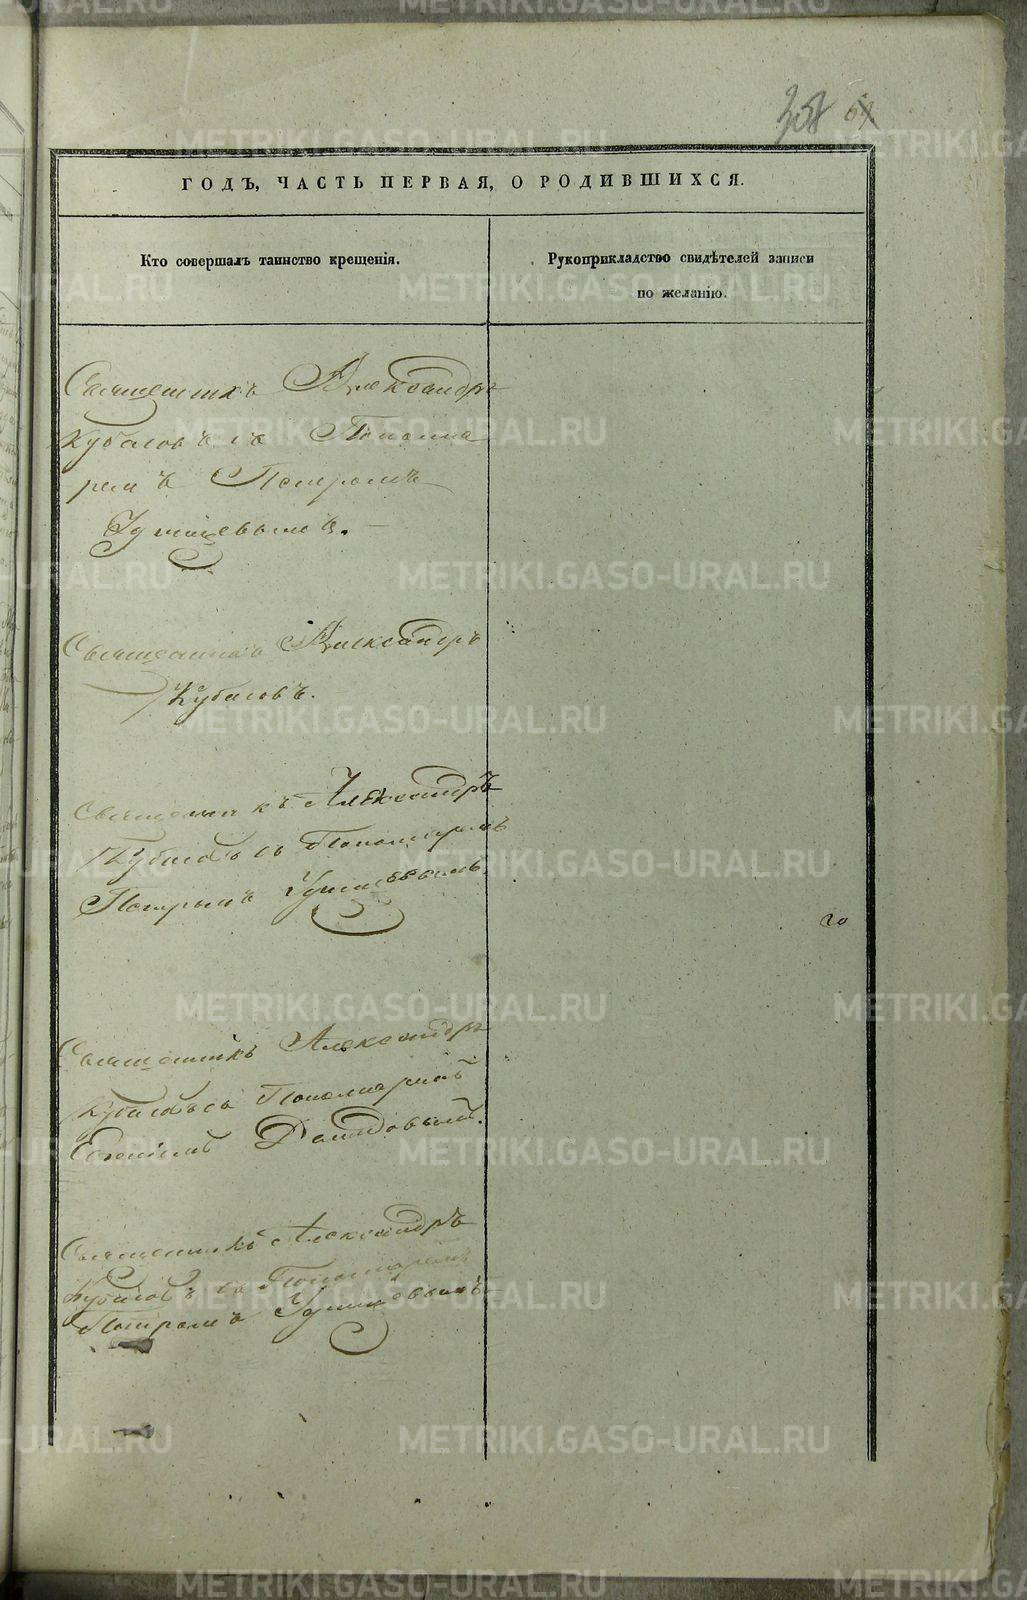 358 64
ГОДЪ, ЧАСТЬ ПЕРВАЯ, О РОДИВШИХСЯ.
Кто совершалъ таинство крещенія.
Рукоприкладство свидѣтелей записи
по желанію.
Священникъ Александръ
Кубасовъ съ Понома
ремъ Петромъ
Удинцевымъ.
Священникъ Александръ
Кубасовъ.
Священникъ Александръ
Кубасовъ съ Пономаремъ
Петромъ Удинцевымъ
Священникъ Александръ
Кубасовъ съ Пономаремъ
Евгеніемъ
Священникъ Александръ
Кубасовъ съ Пономаремъ
Петромъ Удинцевымъ
METRIKI.GASO-URAL.RU